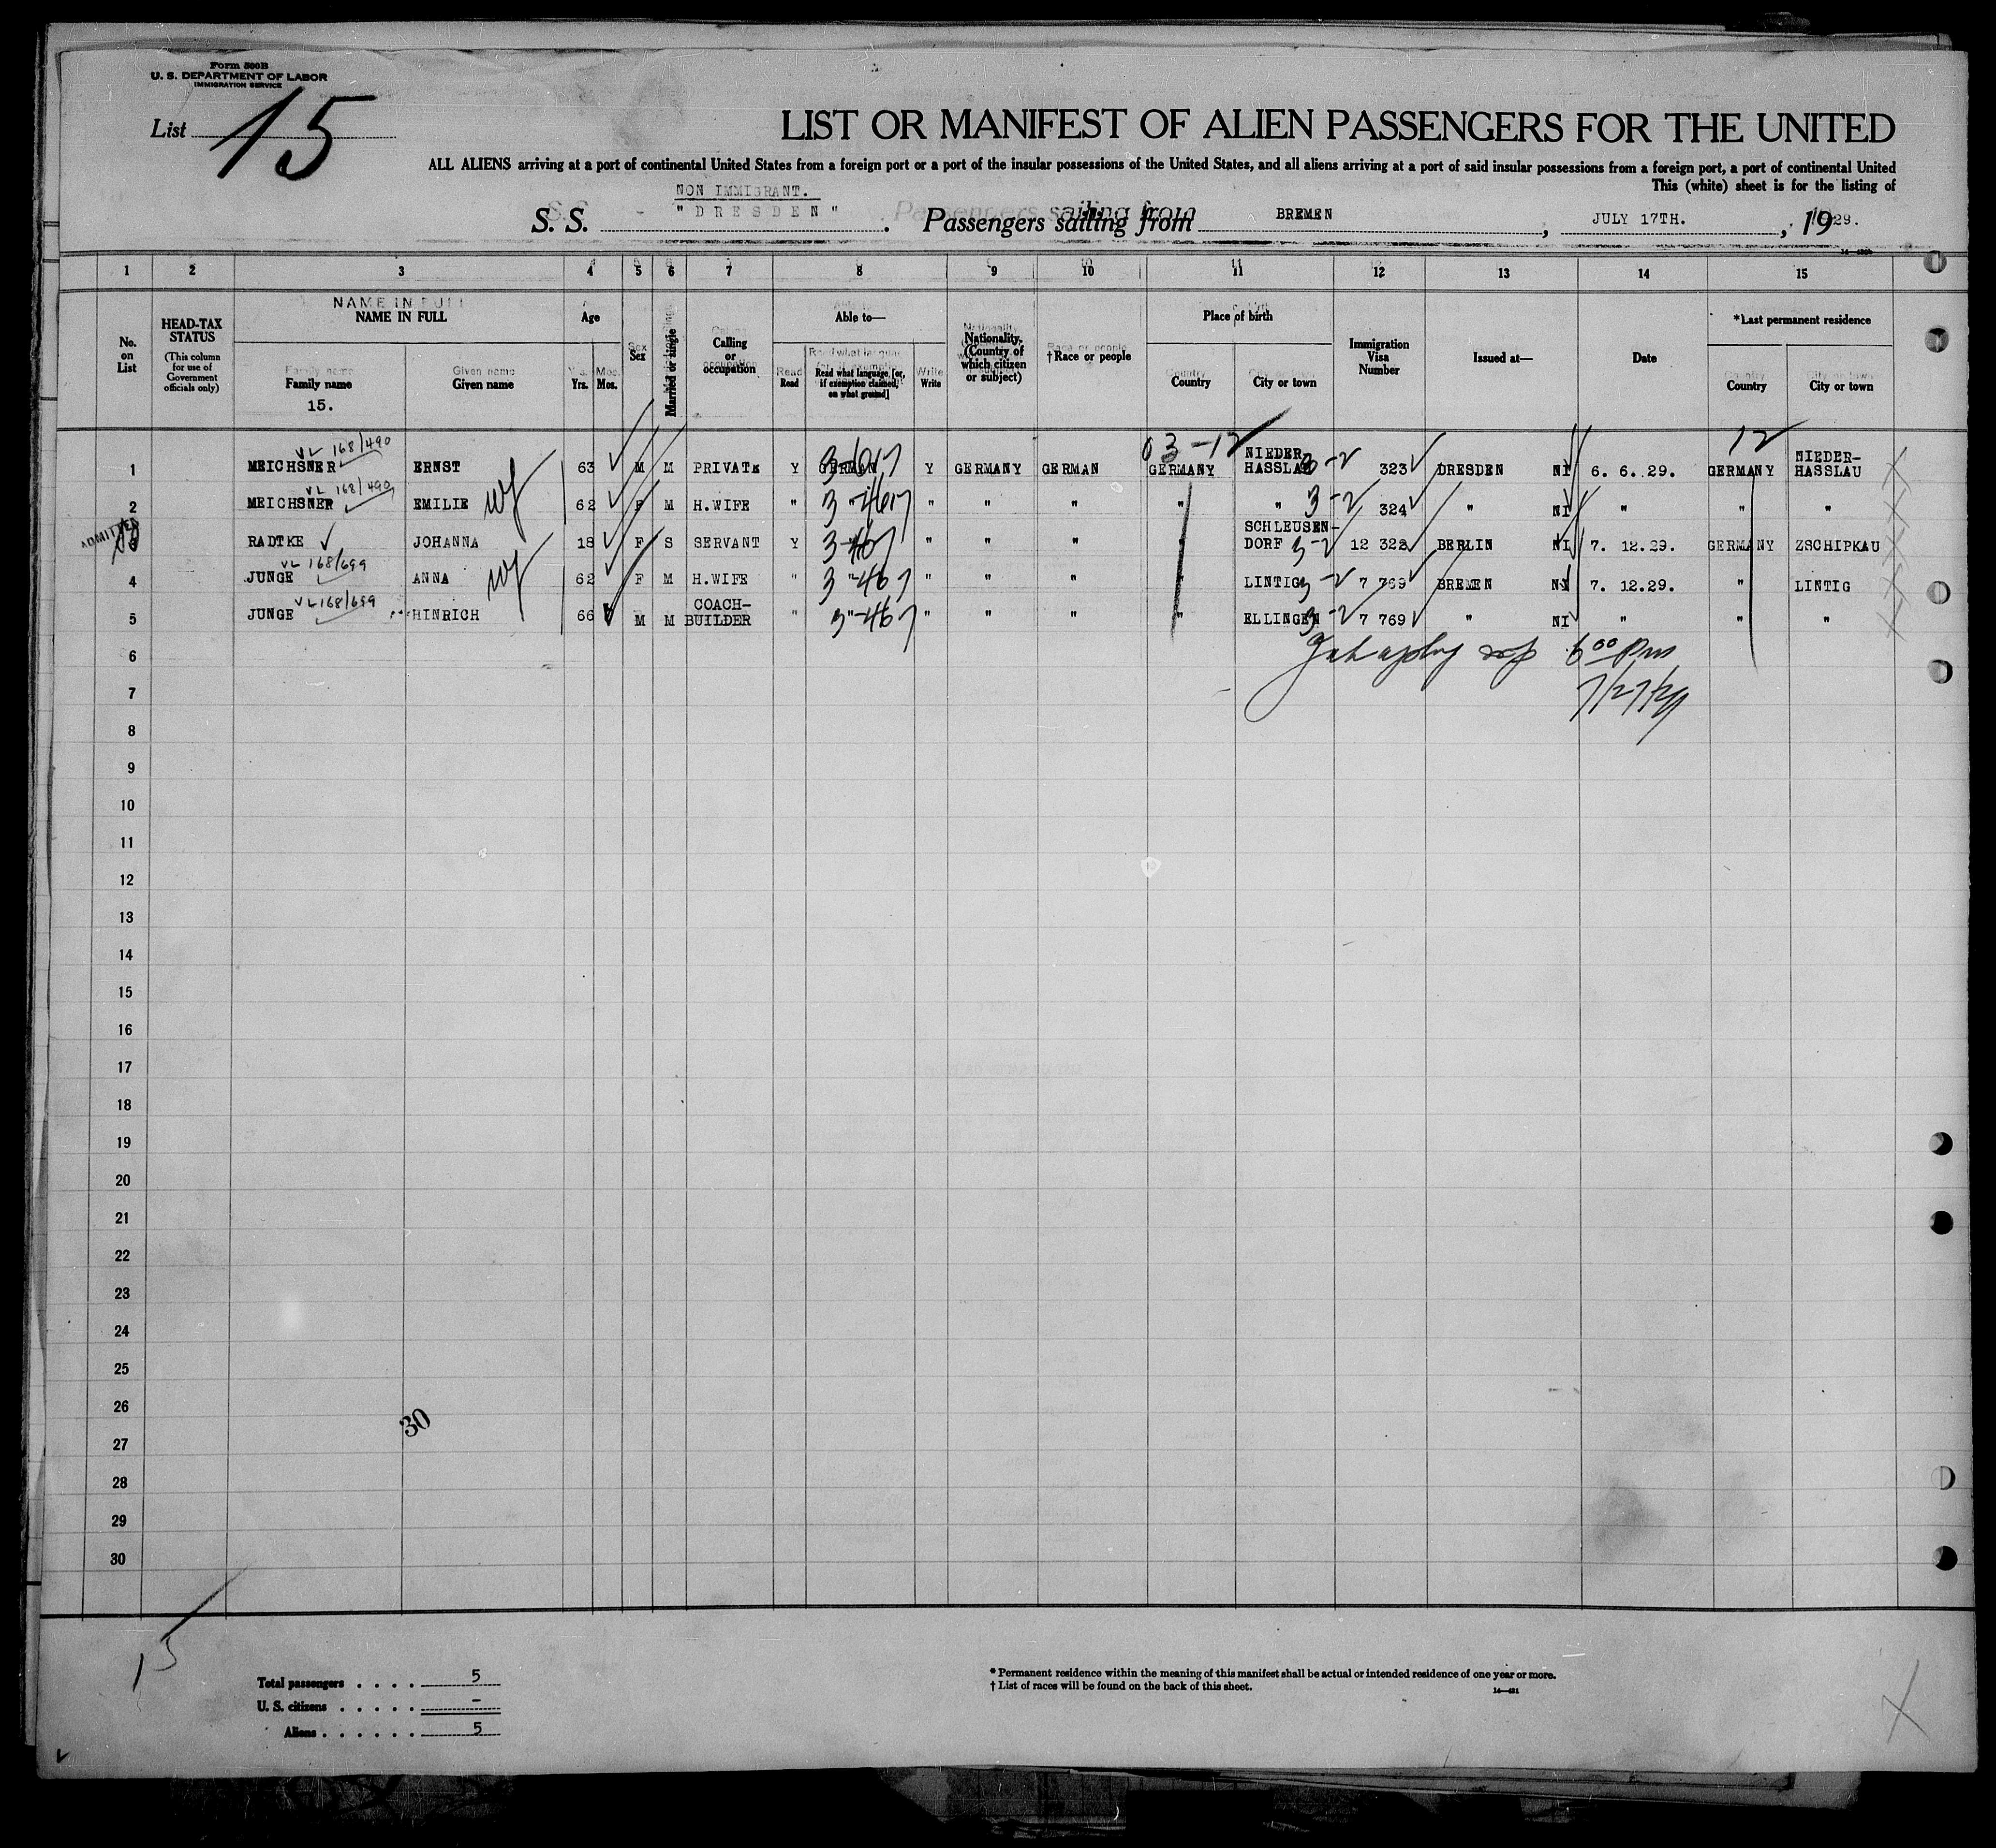 Form 500B
U. S. DEPARTMENT OF LABOR
IMMIGRATION SERVICE
List 15
LIST OR MANIFEST OF ALIEN PASSENGERS FOR THE UNITED
ALL ALIENS arriving at a port of continental United States from a foreign port or a port of the insular possessions of the United States, and all aliens arriving at a port of said insular possessions from a foreign port, a port of continental United
This (white) sheet is for the listing of
NON IMMIGRANT.
S. S. "DRESDEN". Passengers sailing from BREMEN, JULY 17TH., 1929.
1 2 3 4 5 6 7 8 9 10 11 12 13 14 15
No. on List
HEAD-TAX STATUS
(This column for use of Government officials only)
NAME IN FULL
Family name Given name
15.
Age
Yrs. Mos.
Sex
Married or single
Calling or occupation
Able to—
Read Read what language [or, if exemption claimed, on what ground] Write
Nationality. (Country of which citizen or subject)
†Race or people
Place of birth
Country City or town
Immigration Visa Number
Issued at—
Date
*Last permanent residence
Country City or town
VL 168/490 03-12 12
1 MEICHSNER ERNST 63 M M PRIVATE Y GERMAN Y GERMANY GERMAN GERMANY NIEDER HASSLAU 3-2 323 DRESDEN NI 6. 6. 29. GERMANY NIEDER-HASSLAU
VL 168/490
2 MEICHSNER EMILIE wf 62 F M H.WIFE " 3-467 " " " " " 3-2 324 " NI " " "
ADMITTED
3 RADTKE JOHANNA 18 F S SERVANT Y 3-467 " " " " SCHLEUSEN-DORF 3-2 12 322 BERLIN NI 7. 12.29. GERMANY ZSCHIPKAU
VL 168/699
4 JUNGE ANNA wf 62 F M H.WIFE " 3-467 " " " " LINTIG 3-2 7 769 BREMEN NI 7. 12.29. " LINTIG
VL 168/699
5 JUNGE HINRICH 66 M M COACH-BUILDER " 3-467 " " " " ELLINGEN 3-2 7 769 " NI " " "
6 6 00 Pm
7 7/27/29
8
9
10
11
12
13
14
15
16
17
18
19
20
21
22
23
24
25
26
30
27
28
29
30
15
Total passengers . . . . 5
U. S. citizens . . . . . –
Aliens . . . . . . 5
* Permanent residence within the meaning of this manifest shall be actual or intended residence of one year or more.
† List of races will be found on the back of this sheet.
14—421